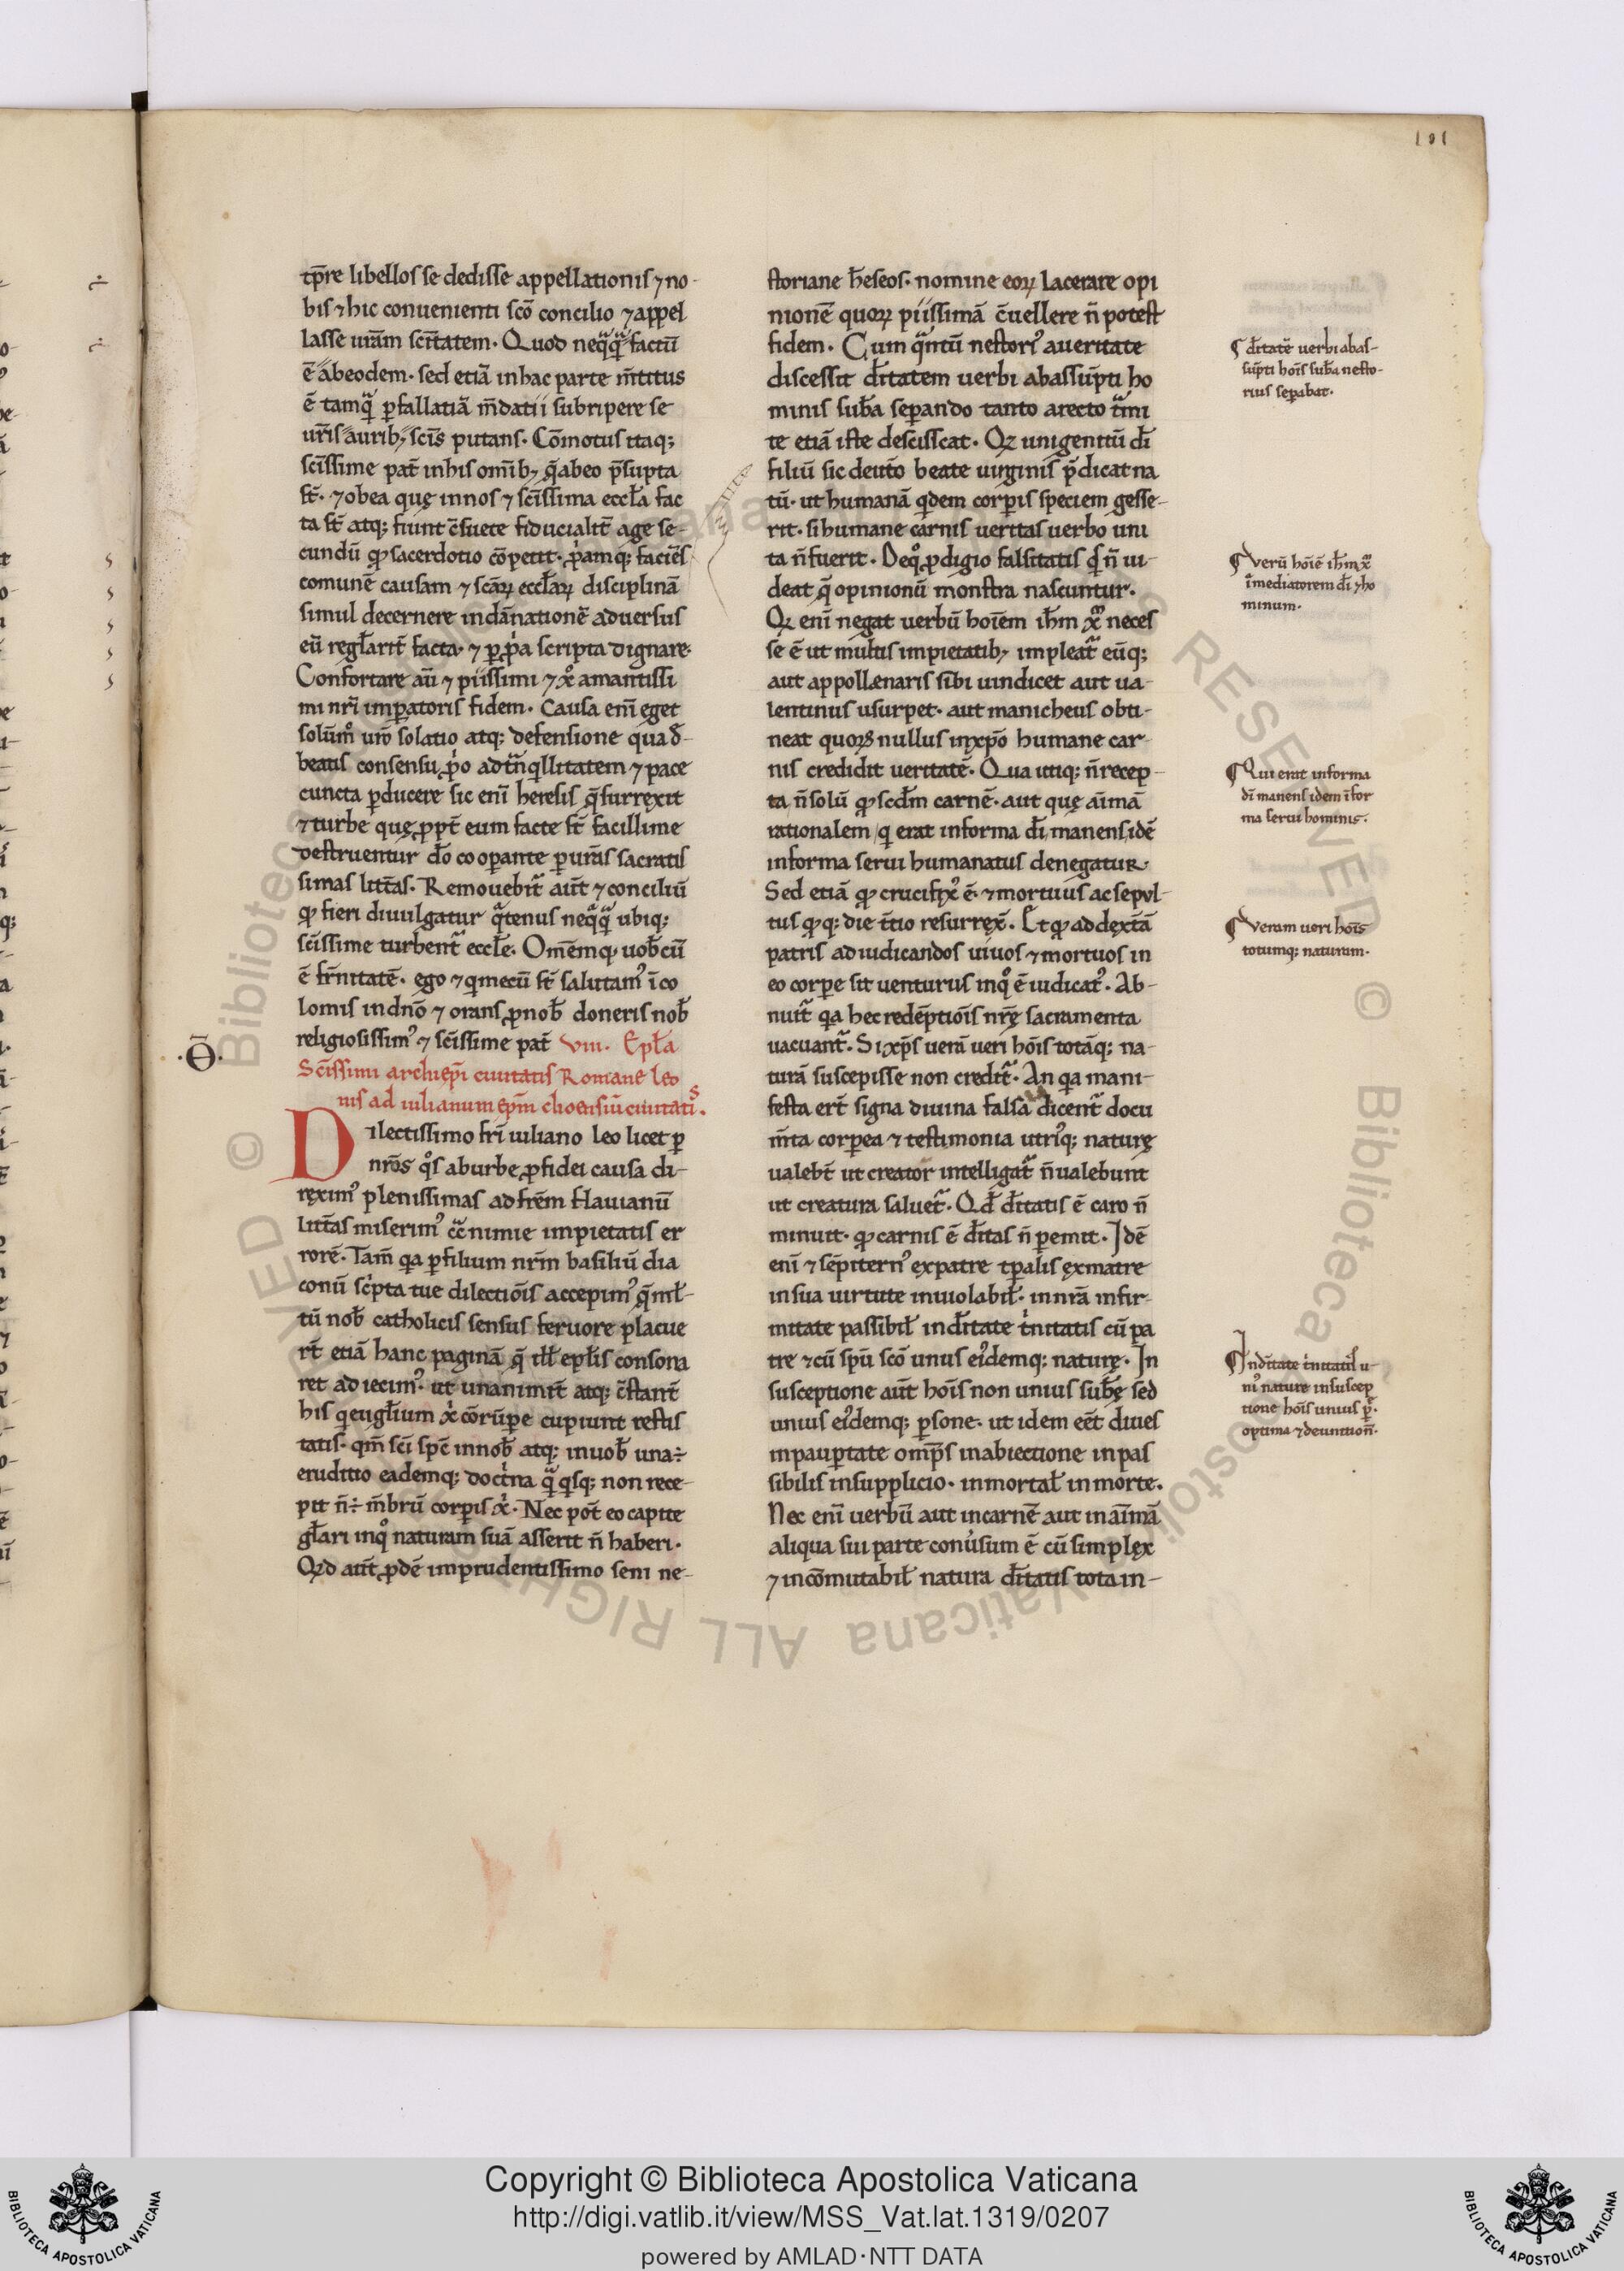 101
tp̄re libellos se dedisse appellationis ⁊ no-
bis ⁊ hic conuenienti scō concilio ⁊ appel
lasse ur̄am scīt̄atem. Quod neq̄q̄ factū
ē abeodem. sed etiā in hac parte m̄titus
ē tamq̄ p̱fallatiā m̄datii subripere se
ur̄is aurib; scīs putans. Cōmotus itaq;
scīssime pat̄ inhis om̄ib; q̄ abeo p̄sūpta
st̄. ⁊ obea quę innos ⁊ scīssima eccl̄a fac
ta st̄ atq; fiunt c̄suete fiducialit̄ age se-
cundū qđ sacerdotio cōpetit. p̱p̱amq; faciēs
comunē causam ⁊ scāꝝ eccl̄aꝝ disciplinā
simul decernere indānationē aduersus
eū regl̄arit̄ facta. ⁊ p̱ p̱p̱a scripta dignare.
Confortare aū ⁊ piissimi ⁊ x̄i amantissi
mi nr̄i imp̱atoris fidem. Causa enī eget
solūm̊ ur̄o solatio atq; defensione qua đ-
beatis consensu p̱p̱o ad t̄nq̄llitatem ⁊ pace
cuncta p̱ducere sic enī heresis q̄ surręxit
⁊ turbe quę p̱p̱t̄ eum facte st̄ facillime
destruentur đo coop̱ante p̱ ur̄as sacratis
simas litt̄as. Remouebit̄ aūt ⁊ conciliū
qđ fieri diuulgatur q̄tenus neq̄q̄ ubiq;
scīssime turbent̄ eccl̄e. Omēmq; uob̄cū
ē fr̄nitatē. ego ⁊ qi mecū st̄ salutam᾽ ī co
lomis in dn̄o ⁊ orans p̱ nob̄ doneris nob̄
religiosissim᾽ ⁊ scīssime pat̄ VIII. Epl̄a
Scīssimi archiep̄i ciuitatis Romane leo
nis ad iulianum ep̄m choensiū ciuitatis.
·Ō·
Dilectissimo fr̄i iuliano leo licet p̱
nr̄os q̊s aburbe p̱ fidei causa di-
ręxim᾽ plenissimas ad fr̄em flauianū
litt̄as miserim᾽ c̄c̄ nimie impietatis er
rorē. Tam̄ qa p̱ filium nr̄m basiliū dia
conū sc̄pta tue dilectiōis accepim᾽ q̄ ml̄-
tū nob̄ catholicis sensus feruore placue
rt̄ etiā hanc paginā q̄ ill̄ epl̄is consona
ret adiecim᾽. ut unanimit̄ atq; c̄stant̄
his qi eugl̄ium x̄i cōrūpe cupiunt restis
tatis. qm̄ scī spc̄ innob̄ atq; in uob̄ una ÷
eruditio eademq; doct̄na q̄ qisq; non rece-
pit n̄ ÷ m̄brū corp̱is x̄i. Nec pot̄ eo capite
gl̄ari inq̊ naturam suā asserit n̄ haberi.
Qđ aūt p̱dē imprudentissimo seni ne-
storiane h̄eseos. nomine eoꝝ lacerare opi
nionē quoꝝ piissimā c̄uellere n̄ potest
fidem. Cum q̄ntū nestori᾽ aueritate
discessit đitatem uerbi abassūpti ho
minis sub̄a sep̱ando tanto arecto t̄mi
te etiā iste desciscat. Qi unigenitū đi
filiū sic deut̄o beate uirginis p̄dicat na
tū. ut humanā qidem corp̱is speciem gesse-
rit. si humane carnis ueritas uerbo uni
ta n̄ fuerit. Deq̊ p̱digio falsitatis qis n̄ ui-
deat q̄ opinionū monstra nascuntur.
Qi enī negat uerbū hoīem ih̄m x̄m neces
se ē ut multis impietatib; impleat̄ eūq;
aut appollenaris sibi uindicet aut ua-
lentinus usurpet. aut manicheus obti-
neat quoꝝ nullus inxp̄o humane car-
nis credidit ueritatē. Qua utiq; n̄ recep-
ta n̄ solū qđ scđm carnē. aut quę aīmā
rationalem qi erat informa đi manens idē
informa serui humanatus denegatur.
Sed etiā qđ crucifix᾽ ē. ⁊ mortuus ac sepul-
tus qđ q; die t̄tio resurręx̄. Et qđ addęxt̄ā
patris adiudicandos uiuos ⁊ mortuos in
eo corp̱e sit uenturus inq̊ ē iudicat᾽. Ab-
nuit̄ qa hec redēptiōis nr̄ę sacramenta
uacuant̄. Si xp̄s uerā ueri hoīs totāq; na-
turā suscepisse non credit̄. An qa mani-
festa ert̄ signa diuina falsa dicent̄ docu
m̄ta corp̱ea ⁊ testimonia utriq; naturę
ualebt̄ ut creator intelligat̄ n̄ ualebunt
ut creatura saluet̄. Qđ đitatis ē caro n̄
minuit. qđ carnis ē đitas n̄ p̱emit. Idē
enī ⁊ sēpitern᾽ expatre tp̱alis ęxmatre
insua uirtute inuiolabil̄. in nr̄a infir-
mitate passibil̄ inđitate t̄nitatis cū pa
tre ⁊ cū spū scō unus ei᾽demq; naturę. In
susceptione aūt hoīs non unius sub̄ę sed
unius ei᾽demq; p̱sone. ut idem eēt diues
inpaup̱tate omp̄s inabiectione inpas
sibilis insupplicio. inmortal̄ in morte.
Nec enī uerbū aut incarnē aut inaīmā
aliqua sui parte conu̇sum ē cū simplęx
⁊ incōmutabil̄ natura đitatis tota in-
¶ đitatē uerbi abas-
sūpti hoīs sub̄a nesto-
rius sep̱abat.
¶ Verū hoīē ih̄m x̄m
īmediatorem đi ⁊ ho
minum.
¶ Qui erat informa
di manens idem īfor
ma serui hominis.
¶ Veram ueri hoīs
totumq; naturam.
¶ Inđitate t̄nitatis u-
ni᾽ nature insuscep
tione hoīs unius p̱.
optima ⁊ deuntion̄.
Copyright © Biblioteca Apostolica Vaticana
http://digi.vatlib.it/view/MSS_Vat.lat.1319/0207
powered by AMLAD·NTT DATA
BIBLIOTECA APOSTOLICA VATICANA
BIBLIOTECA APOSTOLICA VATICANA
© Biblioteca Apostolica Vaticana ALL RIGHTS RESERVED © Biblioteca Apostolica Vaticana ALL RIGHTS RESERVED